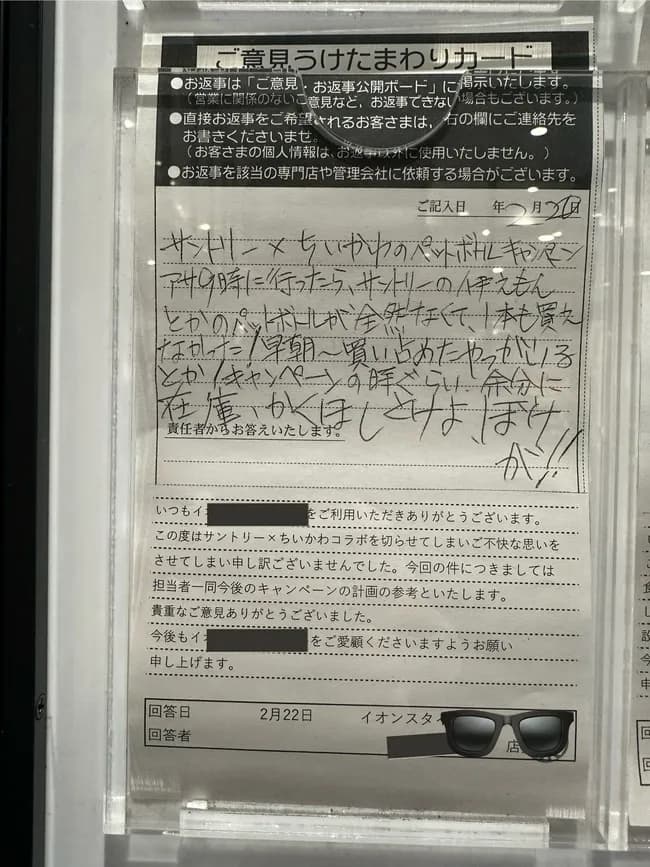 ご意見うけたまわりカード
●お返事は「ご意見・お返事公開ボード」に掲示いたします。
（営業に関係のないご意見など，お返事できない場合もございます。）
●直接お返事をご希望されるお客さまは，右の欄にご連絡先を
お書きくださいませ。
（お客さまの個人情報は、お返事以外に使用いたしません。）
●お返事を該当の専門店や管理会社に依頼する場合がございます。
ご記入日 年 2月2 日
サントリー×ちいかわのペットボトルキャンペーン
アサ9時に行ったら、サントリーの伊えもん
とかのペットボトルが全然なくて、1本も買え
なかった!早朝〜買い占めたやつがいる
とか!キャンペーンの時ぐらい、余分に
在庫、かくほしとけよ、ぼけ
が!!
責任者からお答えいたします。
いつもイオ をご利用いただきありがとうございます。
この度はサントリー×ちいかわコラボを切らせてしまいご不快な思いを
させてしまい申し訳ございませんでした。今回の件につきましては
担当者一同今後のキャンペーンの計画の参考といたします。
貴重なご意見ありがとうございました。
今後もイオ をご愛顧くださいますようお願い
申し上げます。
回答日 2月22日 イオンスタイ
回答者 店